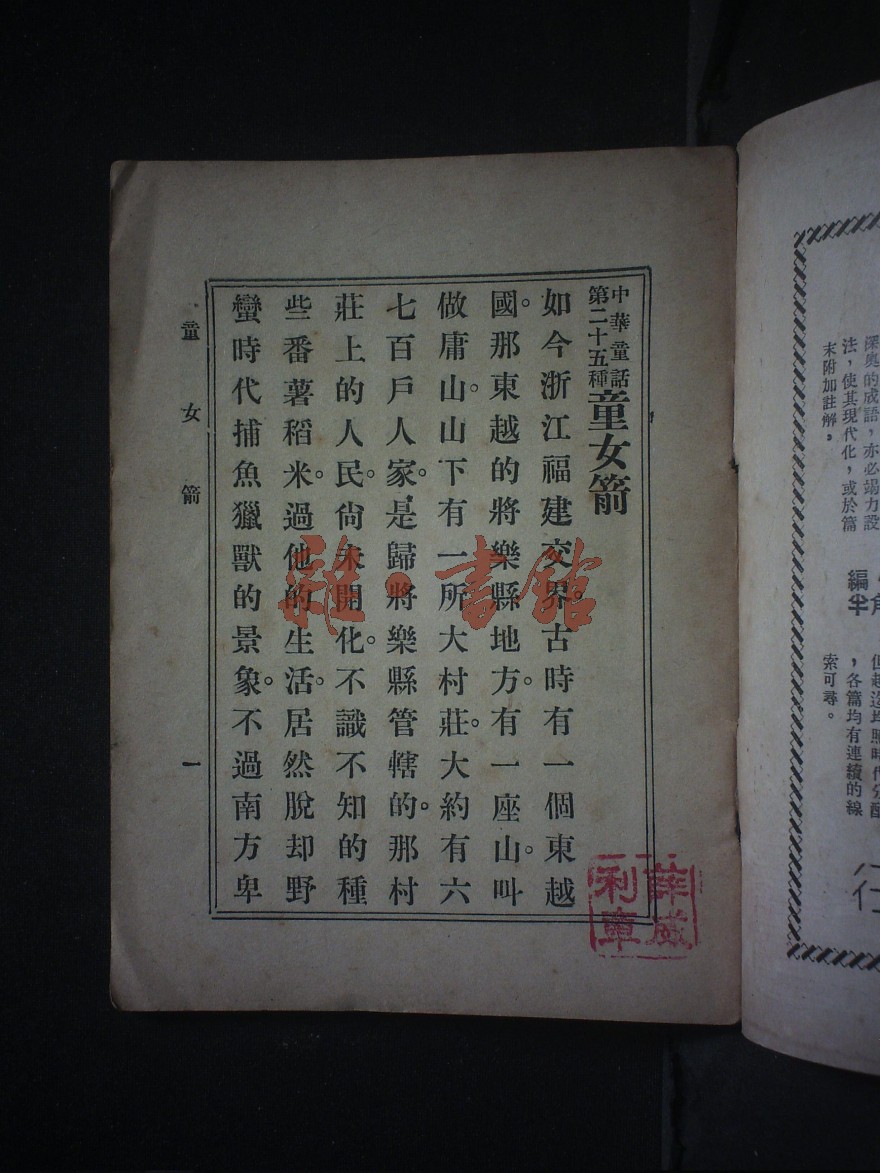 中華童話
第二十五種
童女箭
如今浙江福建交界。古時有一個東越
國。那東越的將樂縣地方。有一座山。叫
做庸山。山下有一所大村莊。大約有六
七百戶人家。是歸將樂縣管轄的。那村
莊上的人民。尙未開化。不識不知的種
些番薯稻米。過他的生活。居然脫却野
蠻時代捕魚獵獸的景象。不過南方卑
童女箭
一
深奥的成語，亦必竭力設
法，使其現代化，或於篇
末附加註解。
編
，各篇均有連續的線
索可尋。
雜·書館
薛威
利章